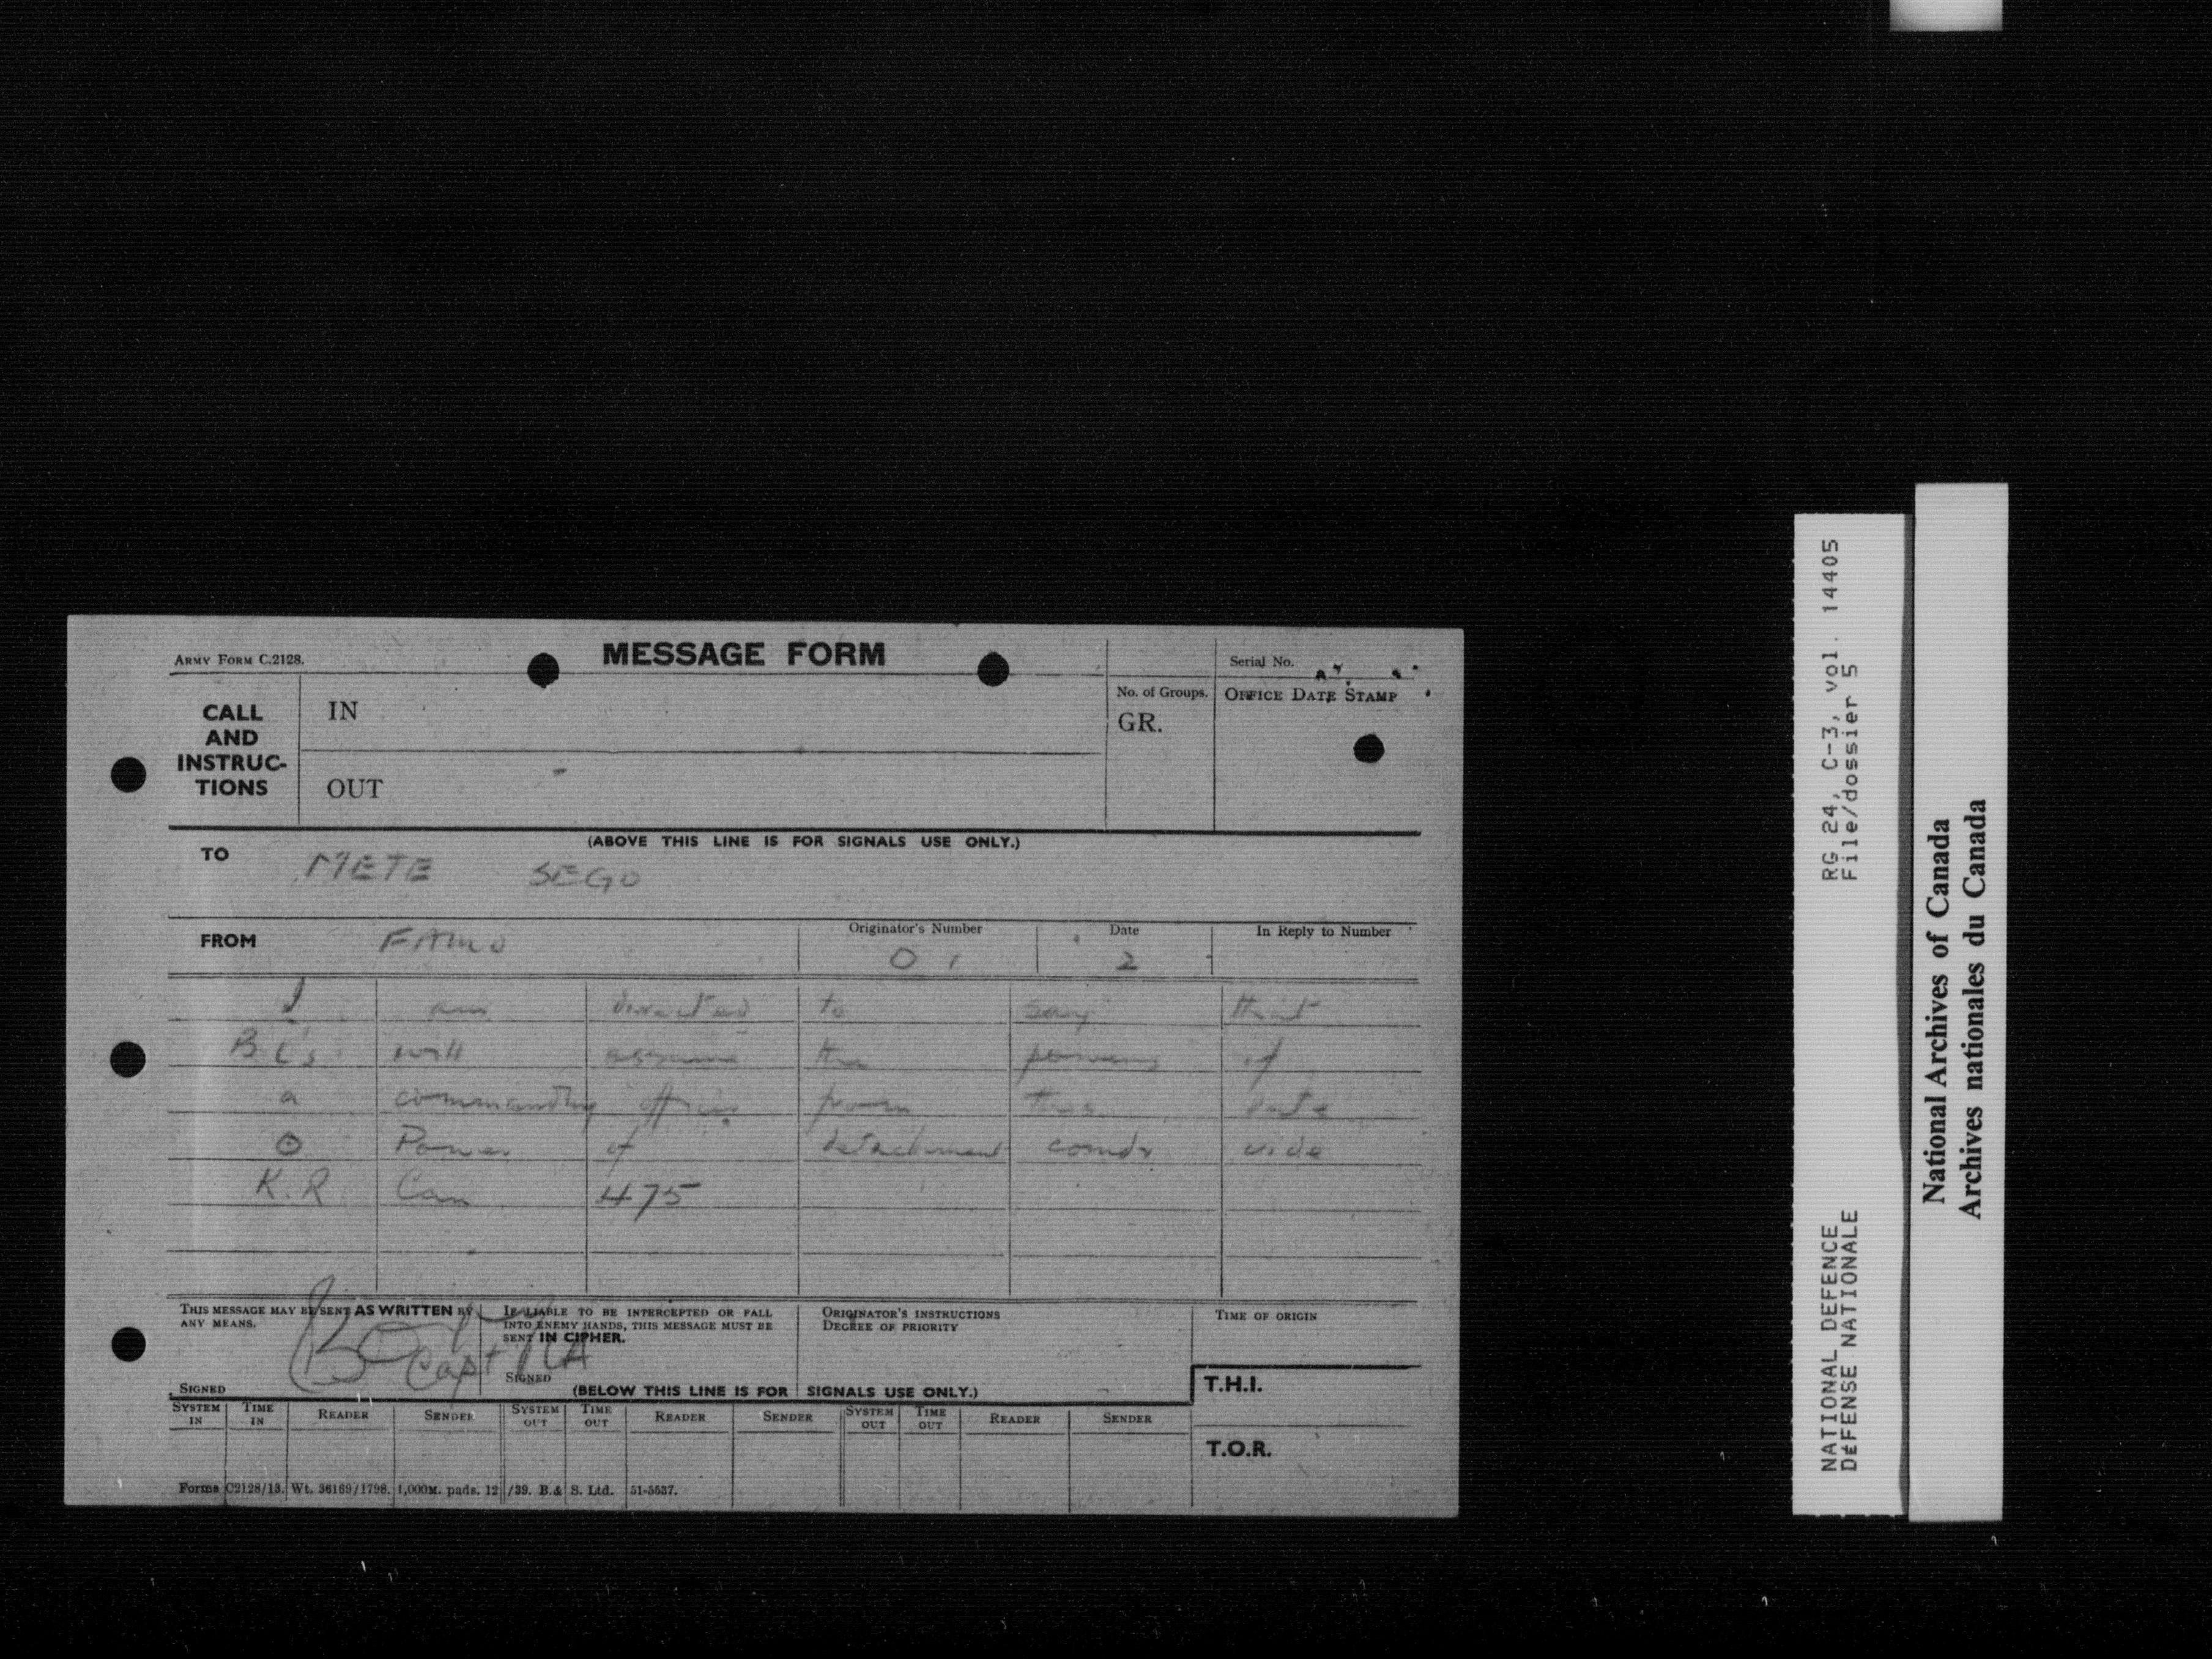 ARMY FORM C.2128.
MESSAGE FORM
Serial No.
CALL AND INSTRUC-TIONS
IN
OUT
No. of Groups.
GR.
OFFICE DATE STAMP
(ABOVE THIS LINE IS FOR SIGNALS USE ONLY.)
TO METE SEGO
FROM FAMO
Originator's Number
O 1
Date
2
In Reply to Number
I am directed to say that
BC's will assume the powers of
a commanding officer from this date
O Power of detachment comdr vide
K.R Can 475
THIS MESSAGE MAY BE SENT AS WRITTEN BY ANY MEANS.
IF LIABLE TO BE INTERCEPTED OR FALL INTO ENEMY HANDS, THIS MESSAGE MUST BE SENT IN CIPHER.
ORIGINATOR'S INSTRUCTIONS
DEGREE OF PRIORITY
TIME OF ORIGIN
Capt RA
SIGNED
SIGNED
(BELOW THIS LINE IS FOR SIGNALS USE ONLY.)
T.H.I.
SYSTEM IN TIME IN READER SENDER SYSTEM OUT TIME OUT READER SENDER SYSTEM OUT TIME OUT READER SENDER
T.O.R.
Forms C2128/13. Wt. 36169/1798. 1,000M. pads. 12/39. B.& S. Ltd. 51-5537.
RG 24, C-3, vol. 14405
File/dossier 5
NATIONAL DEFENCE
DÉFENSE NATIONALE
National Archives of Canada
Archives nationales du Canada